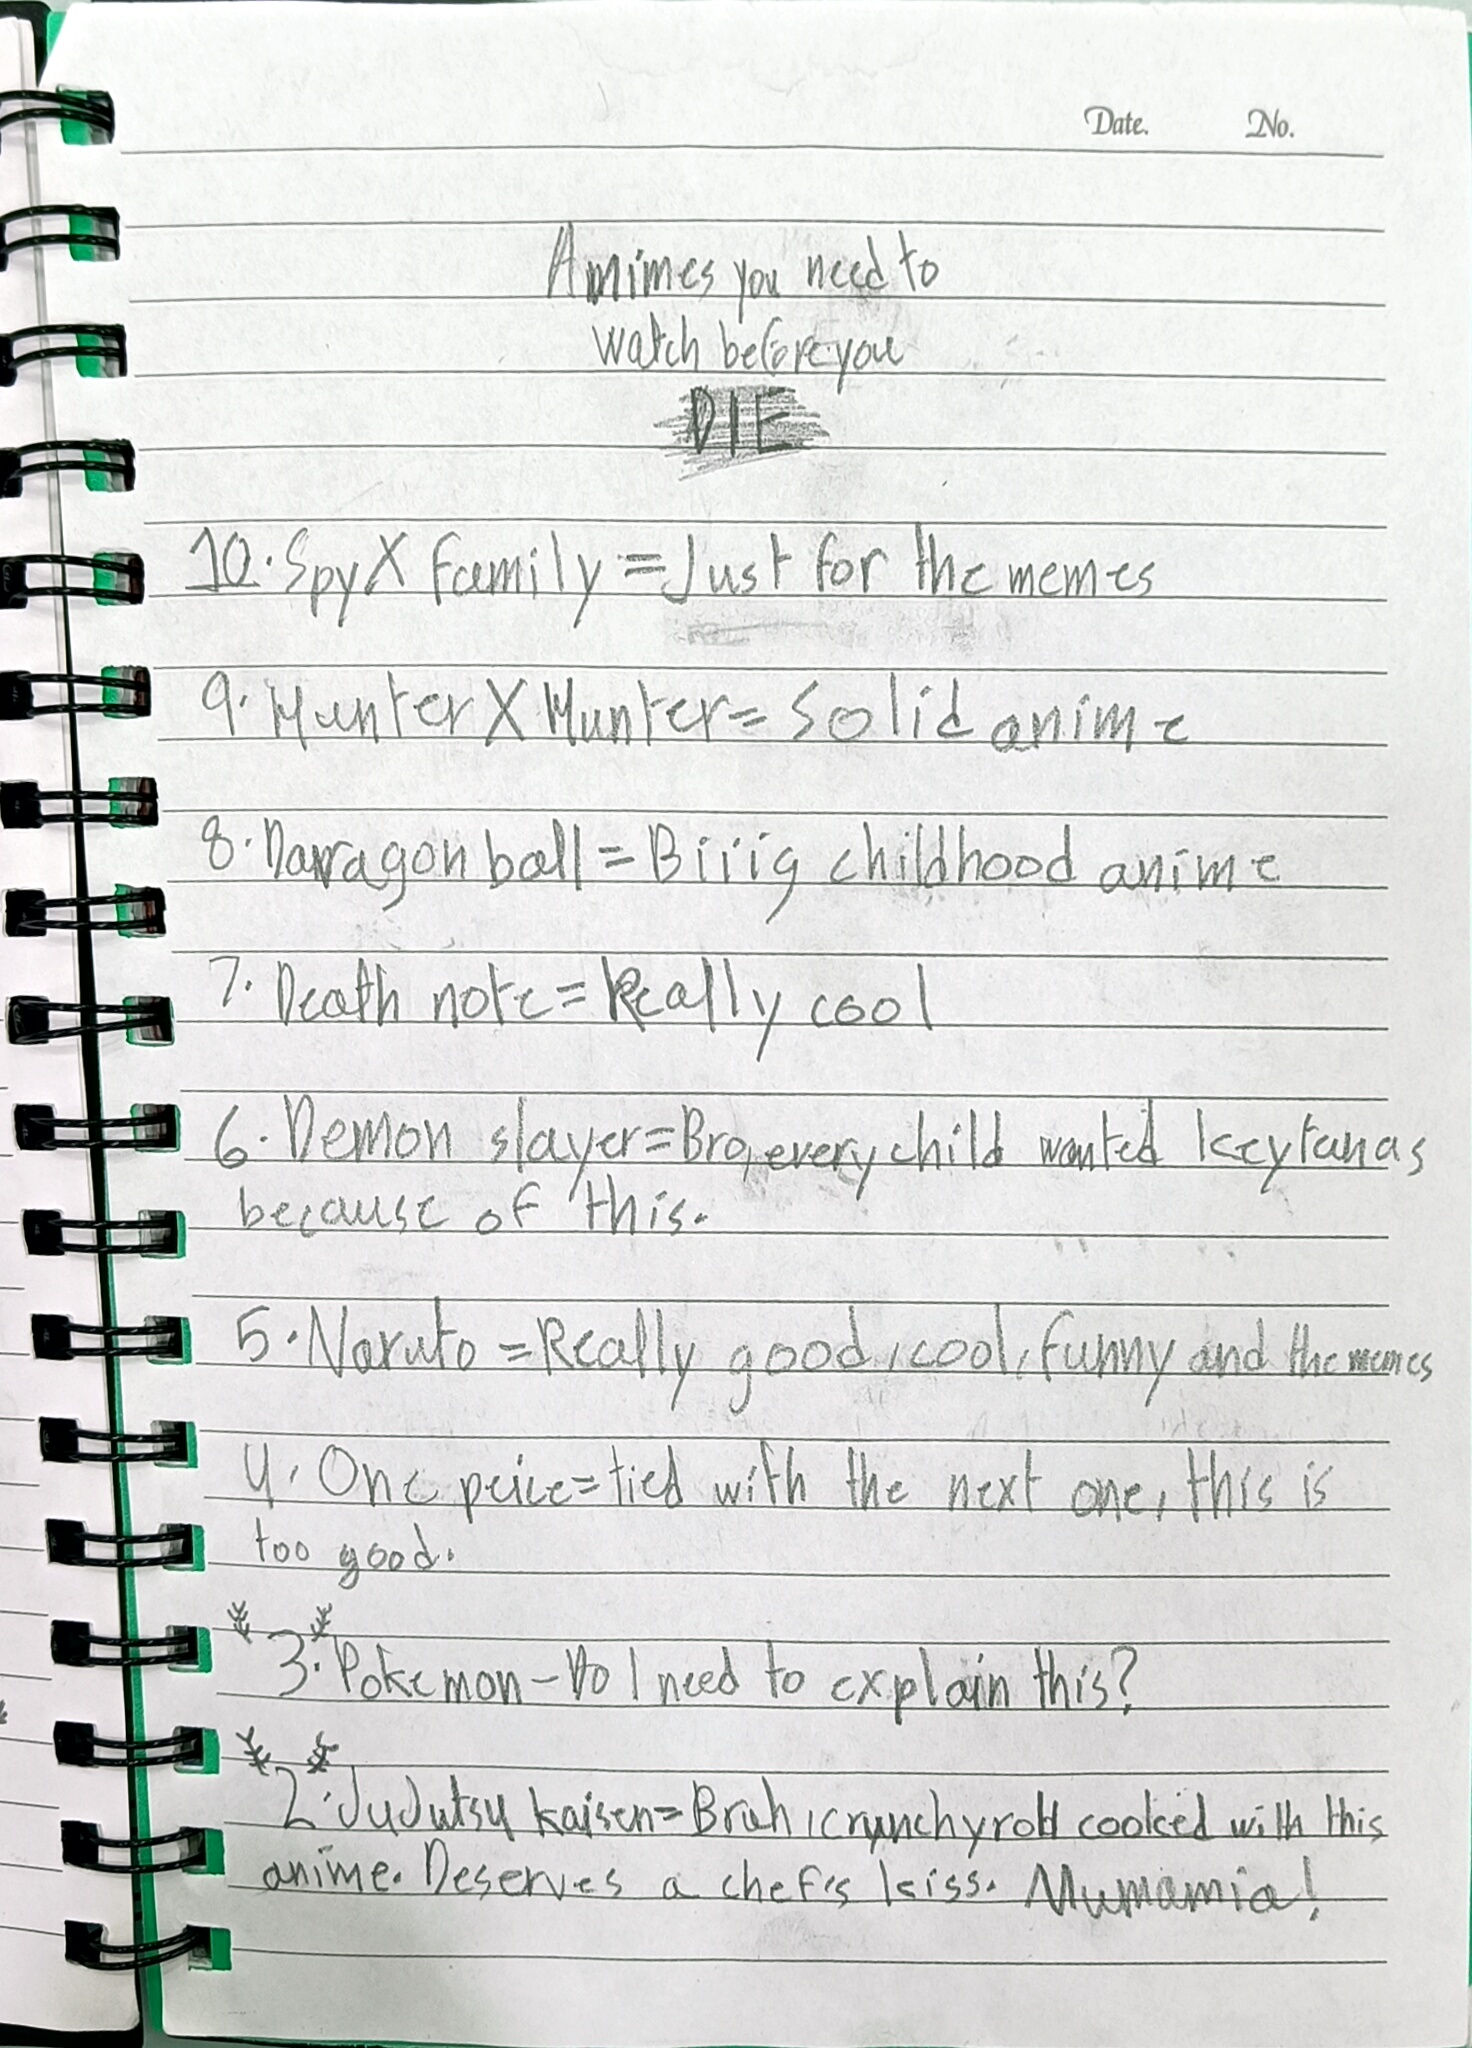 Date. No.
Amimes you need to
watch before you
DIE
10. Spy X family = Just for the memes
9. Hunter X Hunter = Solid anime
8. Darragon ball = Biiig childhood anime
7. Death note = Really cool
6. Demon slayer = Bro, every child wanted keytanas
because of this.
5. Naruto = Really good, cool, funny and the memes
4. One peice = tied with the next one, this is
too good.
3. Pokemon - Do I need to explain this?
2. JuJutsu kaisen = Bruh, crunchyroll cooked with this
anime. Deserves a chef's kiss. Mumamia!